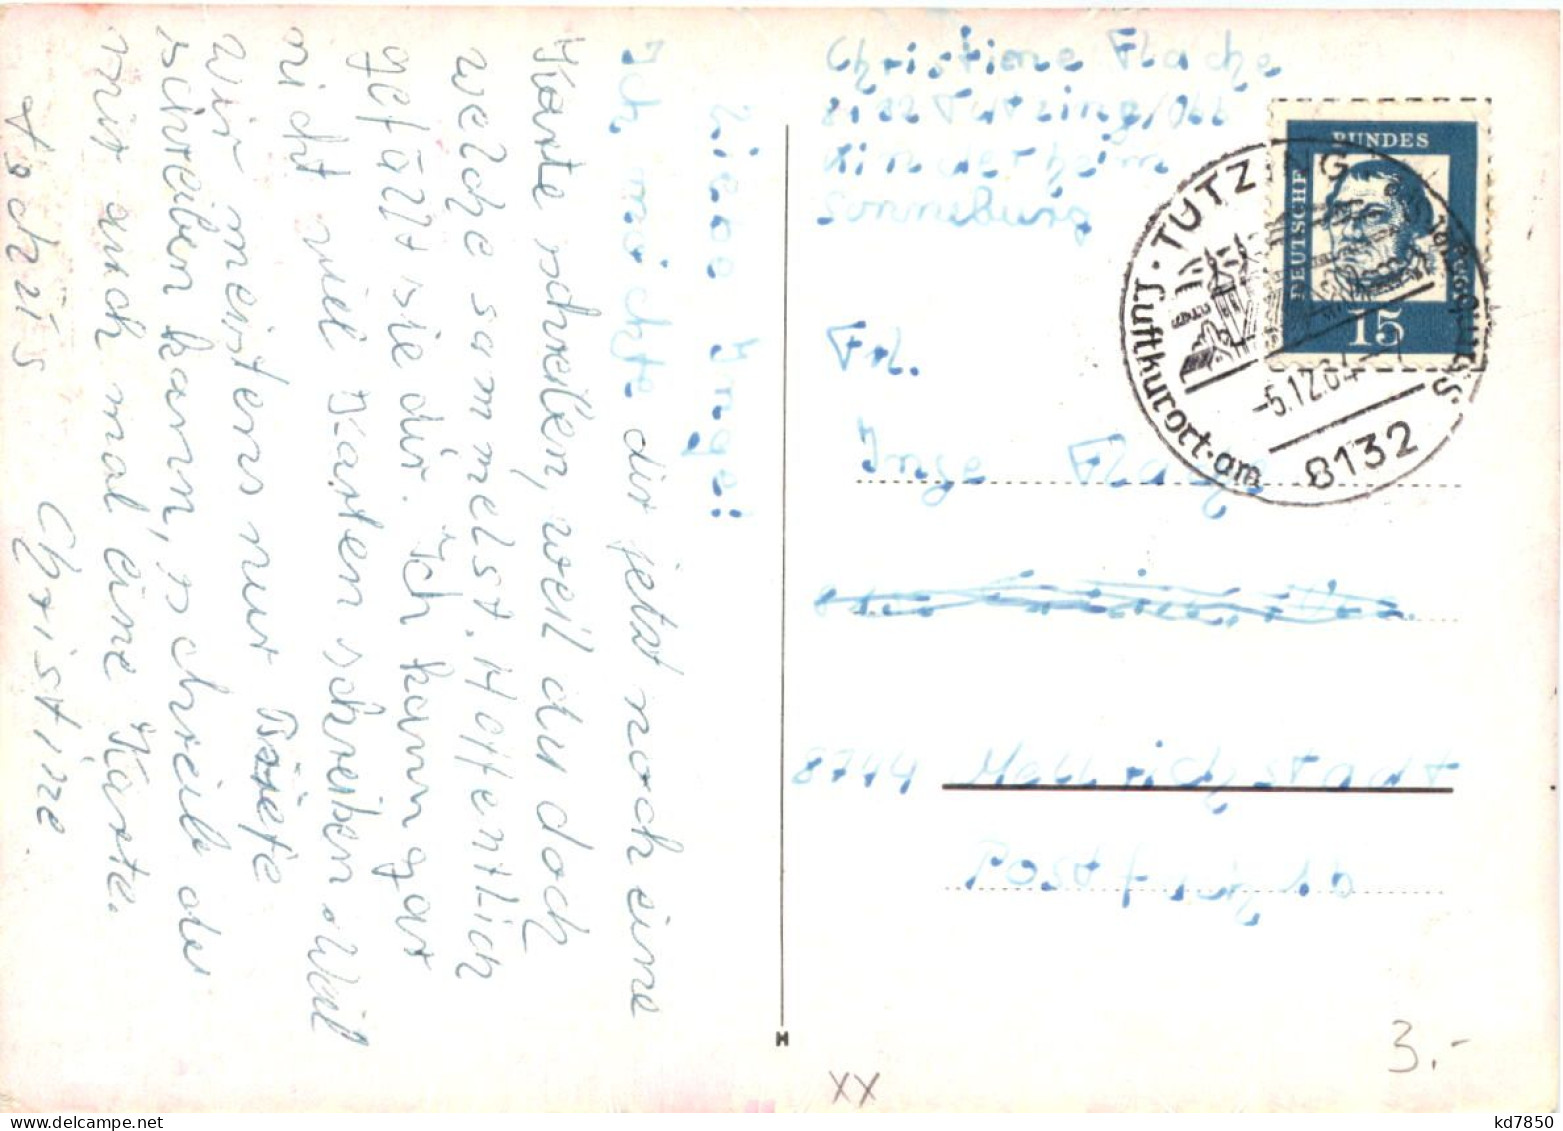 Liebe Inge!
Ich möchte dir jetzt noch eine
Karte schreiben, weil du doch
welche sammelst. Hoffentlich
gefällt sie dir. Ich kann gar
nicht viel Karten schreiben. Weil
wir meistens nur Briefe
schreiben kann, schreib du
mir auch mal eine Karte.
Tschüs
Christine.
Christine Flache
8132 Tutzing/Obb
Kinderheim
Sonneburg
DEUTSCHE BUNDES
15
TUTZING
Luftkurort am
-5.12.64
8132
Frl.
Inge Flache
8744 Mellrichstadt
Postfach 16
3.-
XX
kd7850